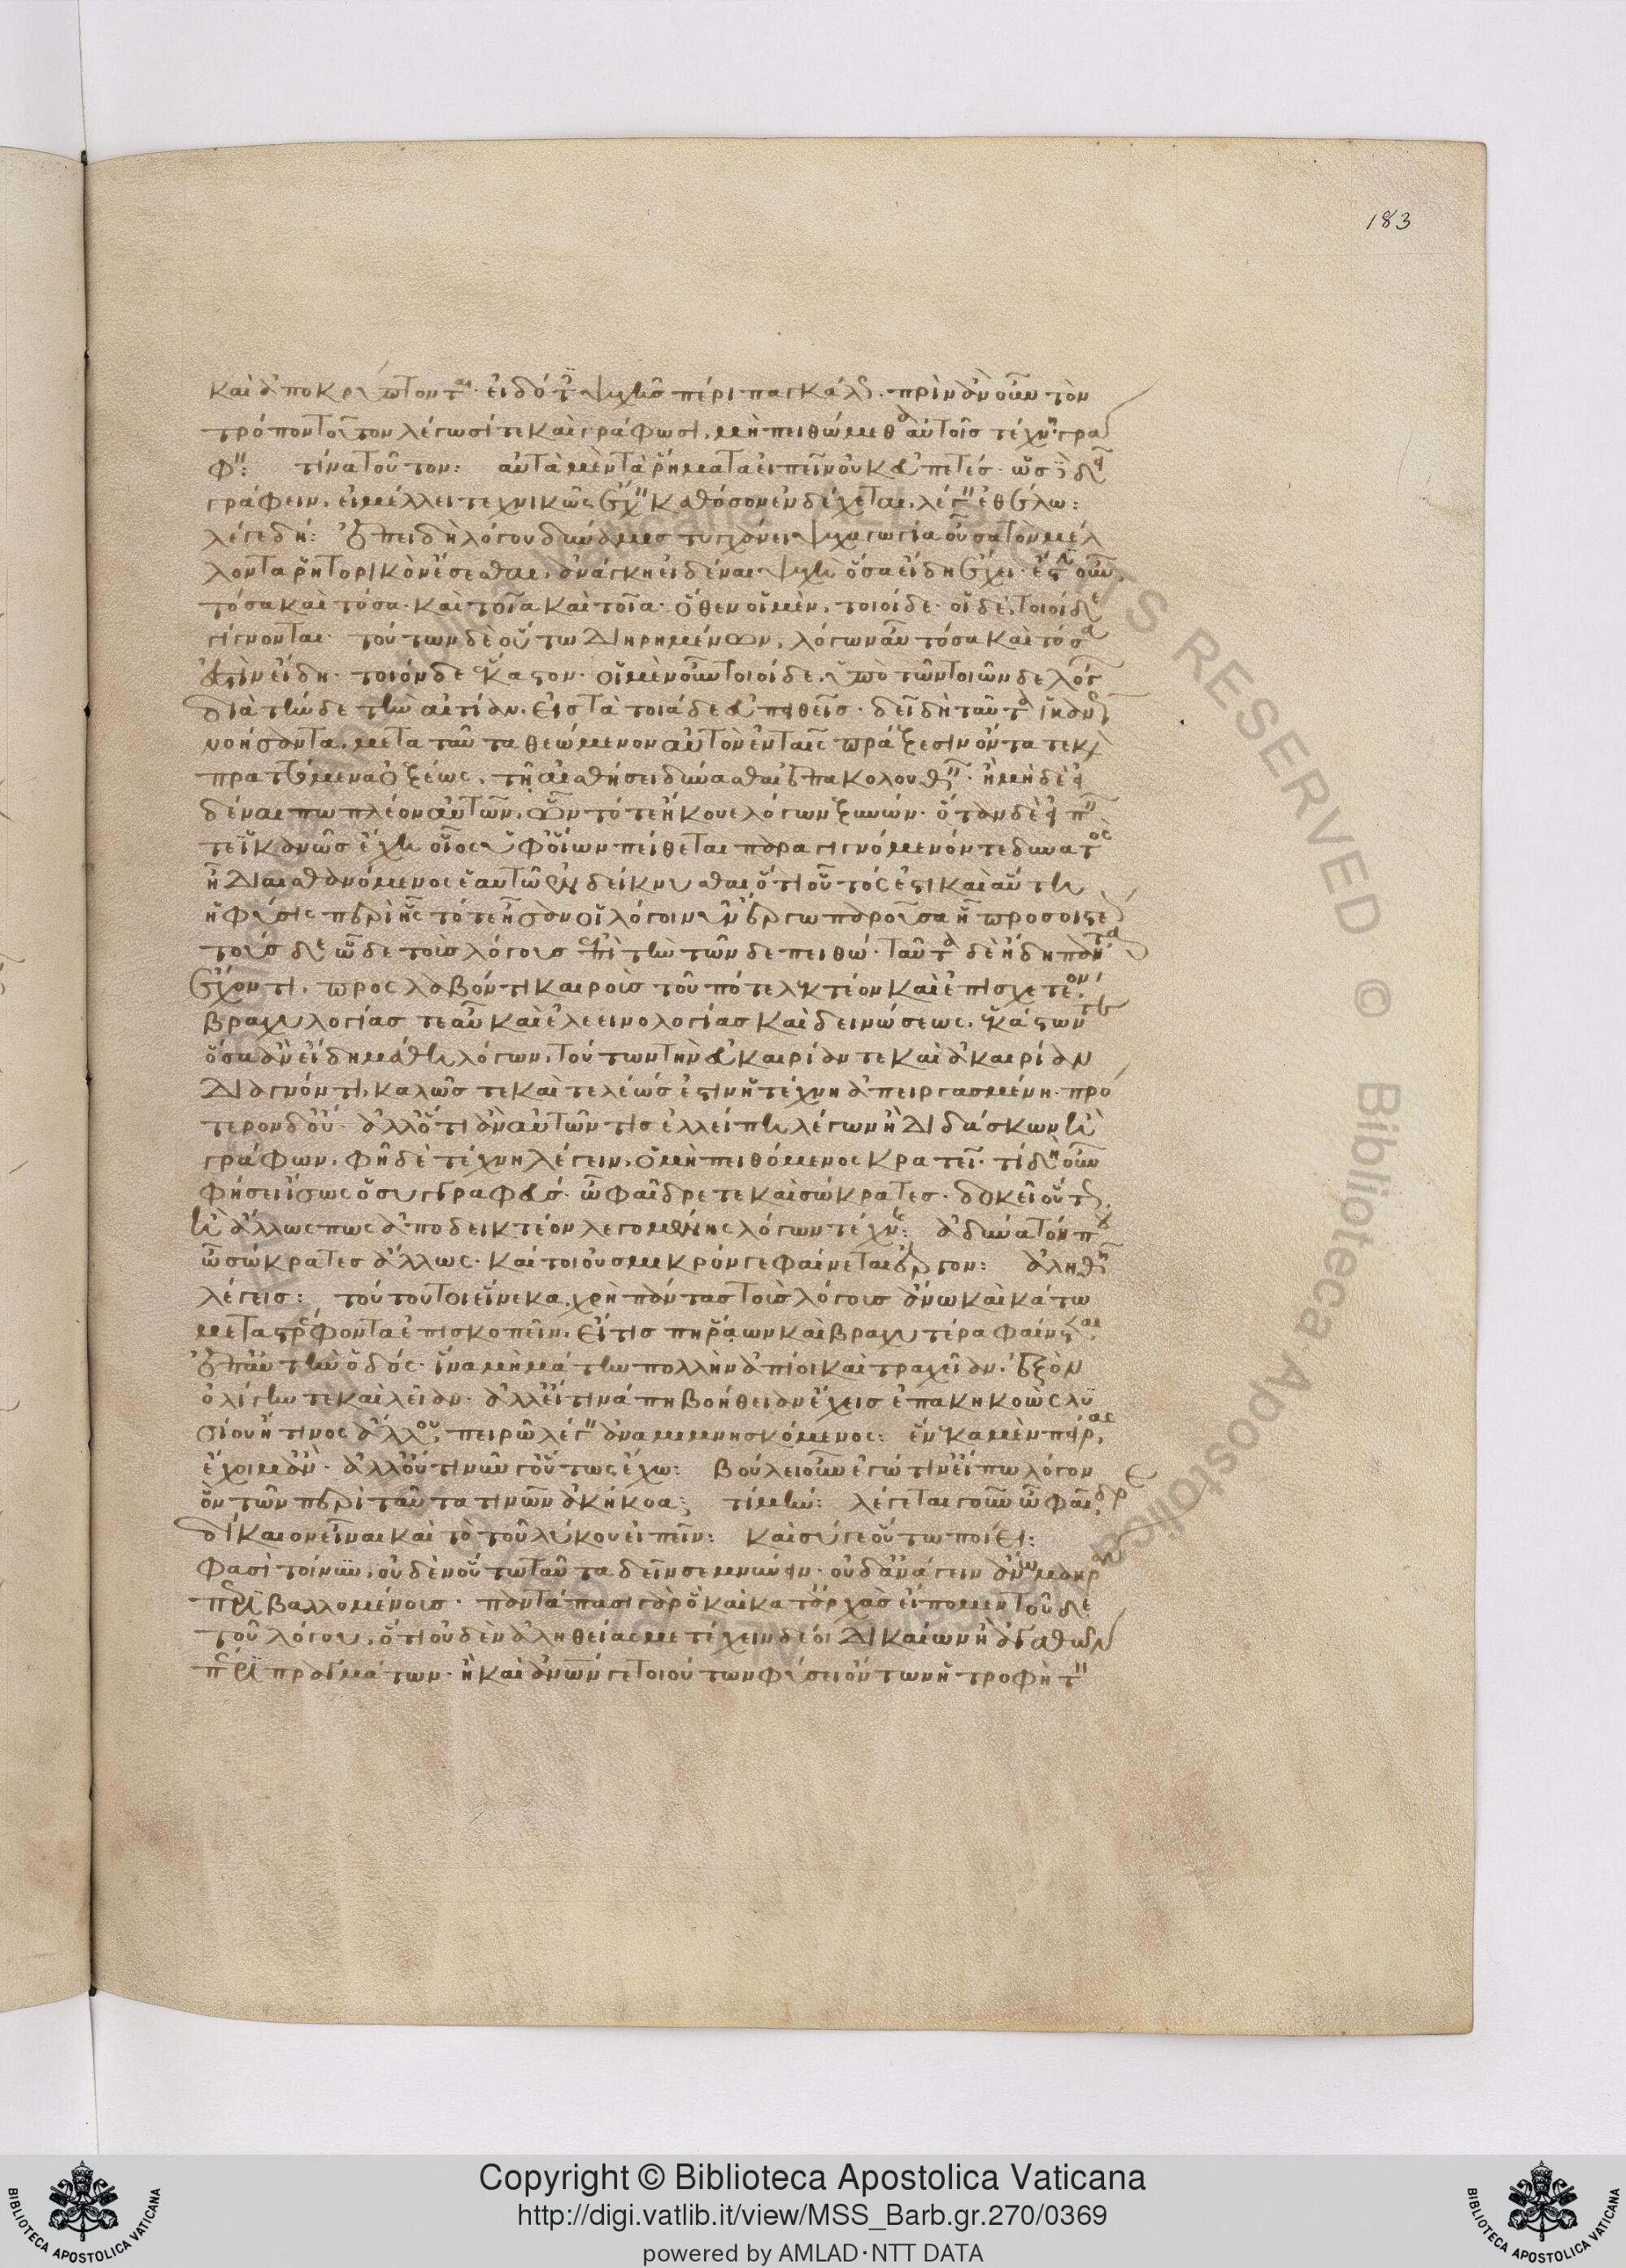 183
καὶ ἀποκρύπτονται εἰδότες ψυχῆς πέρι παγκάλως. πρὶν ἂν οὖν τὸν
τρόπον τοῦτον λέγωσί τε καὶ γράφωσι, μὴ πειθώμεθα αὐτοῖς τέχνῃ γρά
φειν: τίνα τοῦτον: αὐτὰ μὲν τὰ ῥήματα εἰπεῖν οὐκ εὐπετές. ὡς δὲ δεῖ
γράφειν, εἰ μέλλει τεχνικῶς ἔχειν καθόσον ἐνδέχεται, λέγειν ἐθέλω:
λέγε δή: ἐπειδὴ λόγου δύναμις τυγχάνει ψυχαγωγία οὖσα τὸν μέλ
λοντα ῥητορικὸν ἔσεσθαι, ἀνάγκη εἰδέναι ψυχὴ ὅσα εἴδη ἔχει. ἔστιν οὖν
τόσα καὶ τόσα. καὶ τοῖα καὶ τοῖα. ὅθεν οἱ μὲν, τοιοίδε. οἱ δὲ, τοιοίδε
γίγνονται. τούτων δὲ οὕτω διῃρημένων, λόγων αὖ τόσα καὶ τόσα
ἔστιν εἴδη. τοιόνδε ἕκαστον. οἱ μὲν οὖν τοιοίδε, ὑπὸ τῶν τοιῶνδε λόγων
διὰ τήνδε τὴν αἰτίαν, εἰς τὰ τοιάδε εὐπειθεῖς. δεῖ δὴ ταῦτα ἱκανῶς
νοήσαντα, μετὰ ταῦτα θεώμενον αὐτὸν ἐν ταῖς πράξεσιν ὄντα τε καὶ
πραττόμενα ὀξέως, τῇ αἰσθήσει δύνασθαι ἐπακολουθεῖν. ἢ μηδὲ εἰ
δέναι πω πλέον αὐτῶν, ὧν τότε ἤκουε λόγων ξυνών. ὅταν δὲ εἰπεῖν
τε ἱκανῶς ἔχῃ οἷος ὑφ' οἵων πείθεται παραγιγνόμενόν τε δυνατὸς
ᾖ διαισθανόμενος ἑαυτῷ ἐνδείκνυσθαι ὅτι οὗτός ἐστι καὶ αὕτη
ἡ φύσις περὶ ἧς τότε ἦσαν οἱ λόγοι νῦν ἔργῳ παροῦσα ᾗ προσοιστέον
τούσδε ὧδε τοὺς λόγους ἐπὶ τὴν τῶνδε πειθώ. ταῦτα δὲ ἤδη πάντα
ἔχοντι, προσλαβόντι καιροὺς τοῦ πότε λεκτέον καὶ ἐπισχετέον,
βραχυλογίας τε αὖ καὶ ἐλεεινολογίας καὶ δεινώσεως, ἑκάστων τε
ὅσα ἂν εἴδη μάθῃ λόγων, τούτων τὴν εὐκαιρίαν τε καὶ ἀκαιρίαν
διαγνόντι, καλῶς τε καὶ τελέως ἐστὶν ἡ τέχνη ἀπειργασμένη. πρό
τερον δ' οὔ. ἀλλ' ὅ τι ἂν αὐτῶν τις ἐλλείπῃ λέγων ἢ διδάσκων ἢ
γράφων, φῇ δὲ τέχνῃ λέγειν, ὁ μὴ πειθόμενος κρατεῖ. τί δὴ οὖν
φήσει ἴσως ὁ συγγραφεύς. ὦ φαῖδρέ τε καὶ σώκρατες. δοκεῖ οὕτως,
ἢ ἄλλως πως ἀποδεικτέον λεγομένης λόγων τέχνης: ἀδύνατόν που
ὦ σώκρατες ἄλλως. καίτοι οὐ σμικρόν γε φαίνεται ἔργον: ἀληθῆ
λέγεις: τούτου τοι εἵνεκα, χρὴ πάντας τοὺς λόγους ἄνω καὶ κάτω
μεταστρέφοντα ἐπισκοπεῖν, εἴ τις πῃ ῥᾴων καὶ βραχυτέρα φαίνεται
ἐπ' αὐτὴν ὁδός. ἵνα μὴ μάτην πολλὴν ἀπίοι καὶ τραχεῖαν, ἐξὸν
ὀλίγην τε καὶ λείαν. ἀλλ' εἴ τινά πῃ βοήθειαν ἔχεις ἐπακηκοὼς λυ
σίου ἤ τινος ἄλλου, πειρῶ λέγειν ἀναμιμνησκόμενος: ἕνεκα μὲν πείρας
ἔχοιμ' ἄν. ἀλλ' οὔτι νῦν γ' οὕτως ἔχω: βούλει οὖν ἐγώ τιν' εἴπω λόγον
ὃν τῶν περὶ ταῦτά τινων ἀκήκοα: τί μήν: λέγεται γοῦν ὦ φαῖδρε
δίκαιον εἶναι καὶ τὸ τοῦ λύκου εἰπεῖν: καὶ σύ γε οὕτω ποίει:
φασὶ τοίνυν, οὐδὲν οὕτω ταῦτα δεῖν σεμνύνειν. οὐδ' ἀνάγειν ἄνω μακρὰν
περιβαλλομένους. παντάπασι γὰρ ὃ καὶ κατ' ἀρχὰς εἴπομεν τοῦδε
τοῦ λόγου, ὅτι οὐδὲν ἀληθείας μετέχειν δέοι δικαίων ἢ ἀγαθῶν
πέρι πραγμάτων. ἢ καὶ ἀνθρώπων γε τοιούτων φύσει ὄντων ἢ τροφῇ τὸν
Copyright © Biblioteca Apostolica Vaticana
http://digi.vatlib.it/view/MSS_Barb.gr.270/0369
powered by AMLAD·NTT DATA